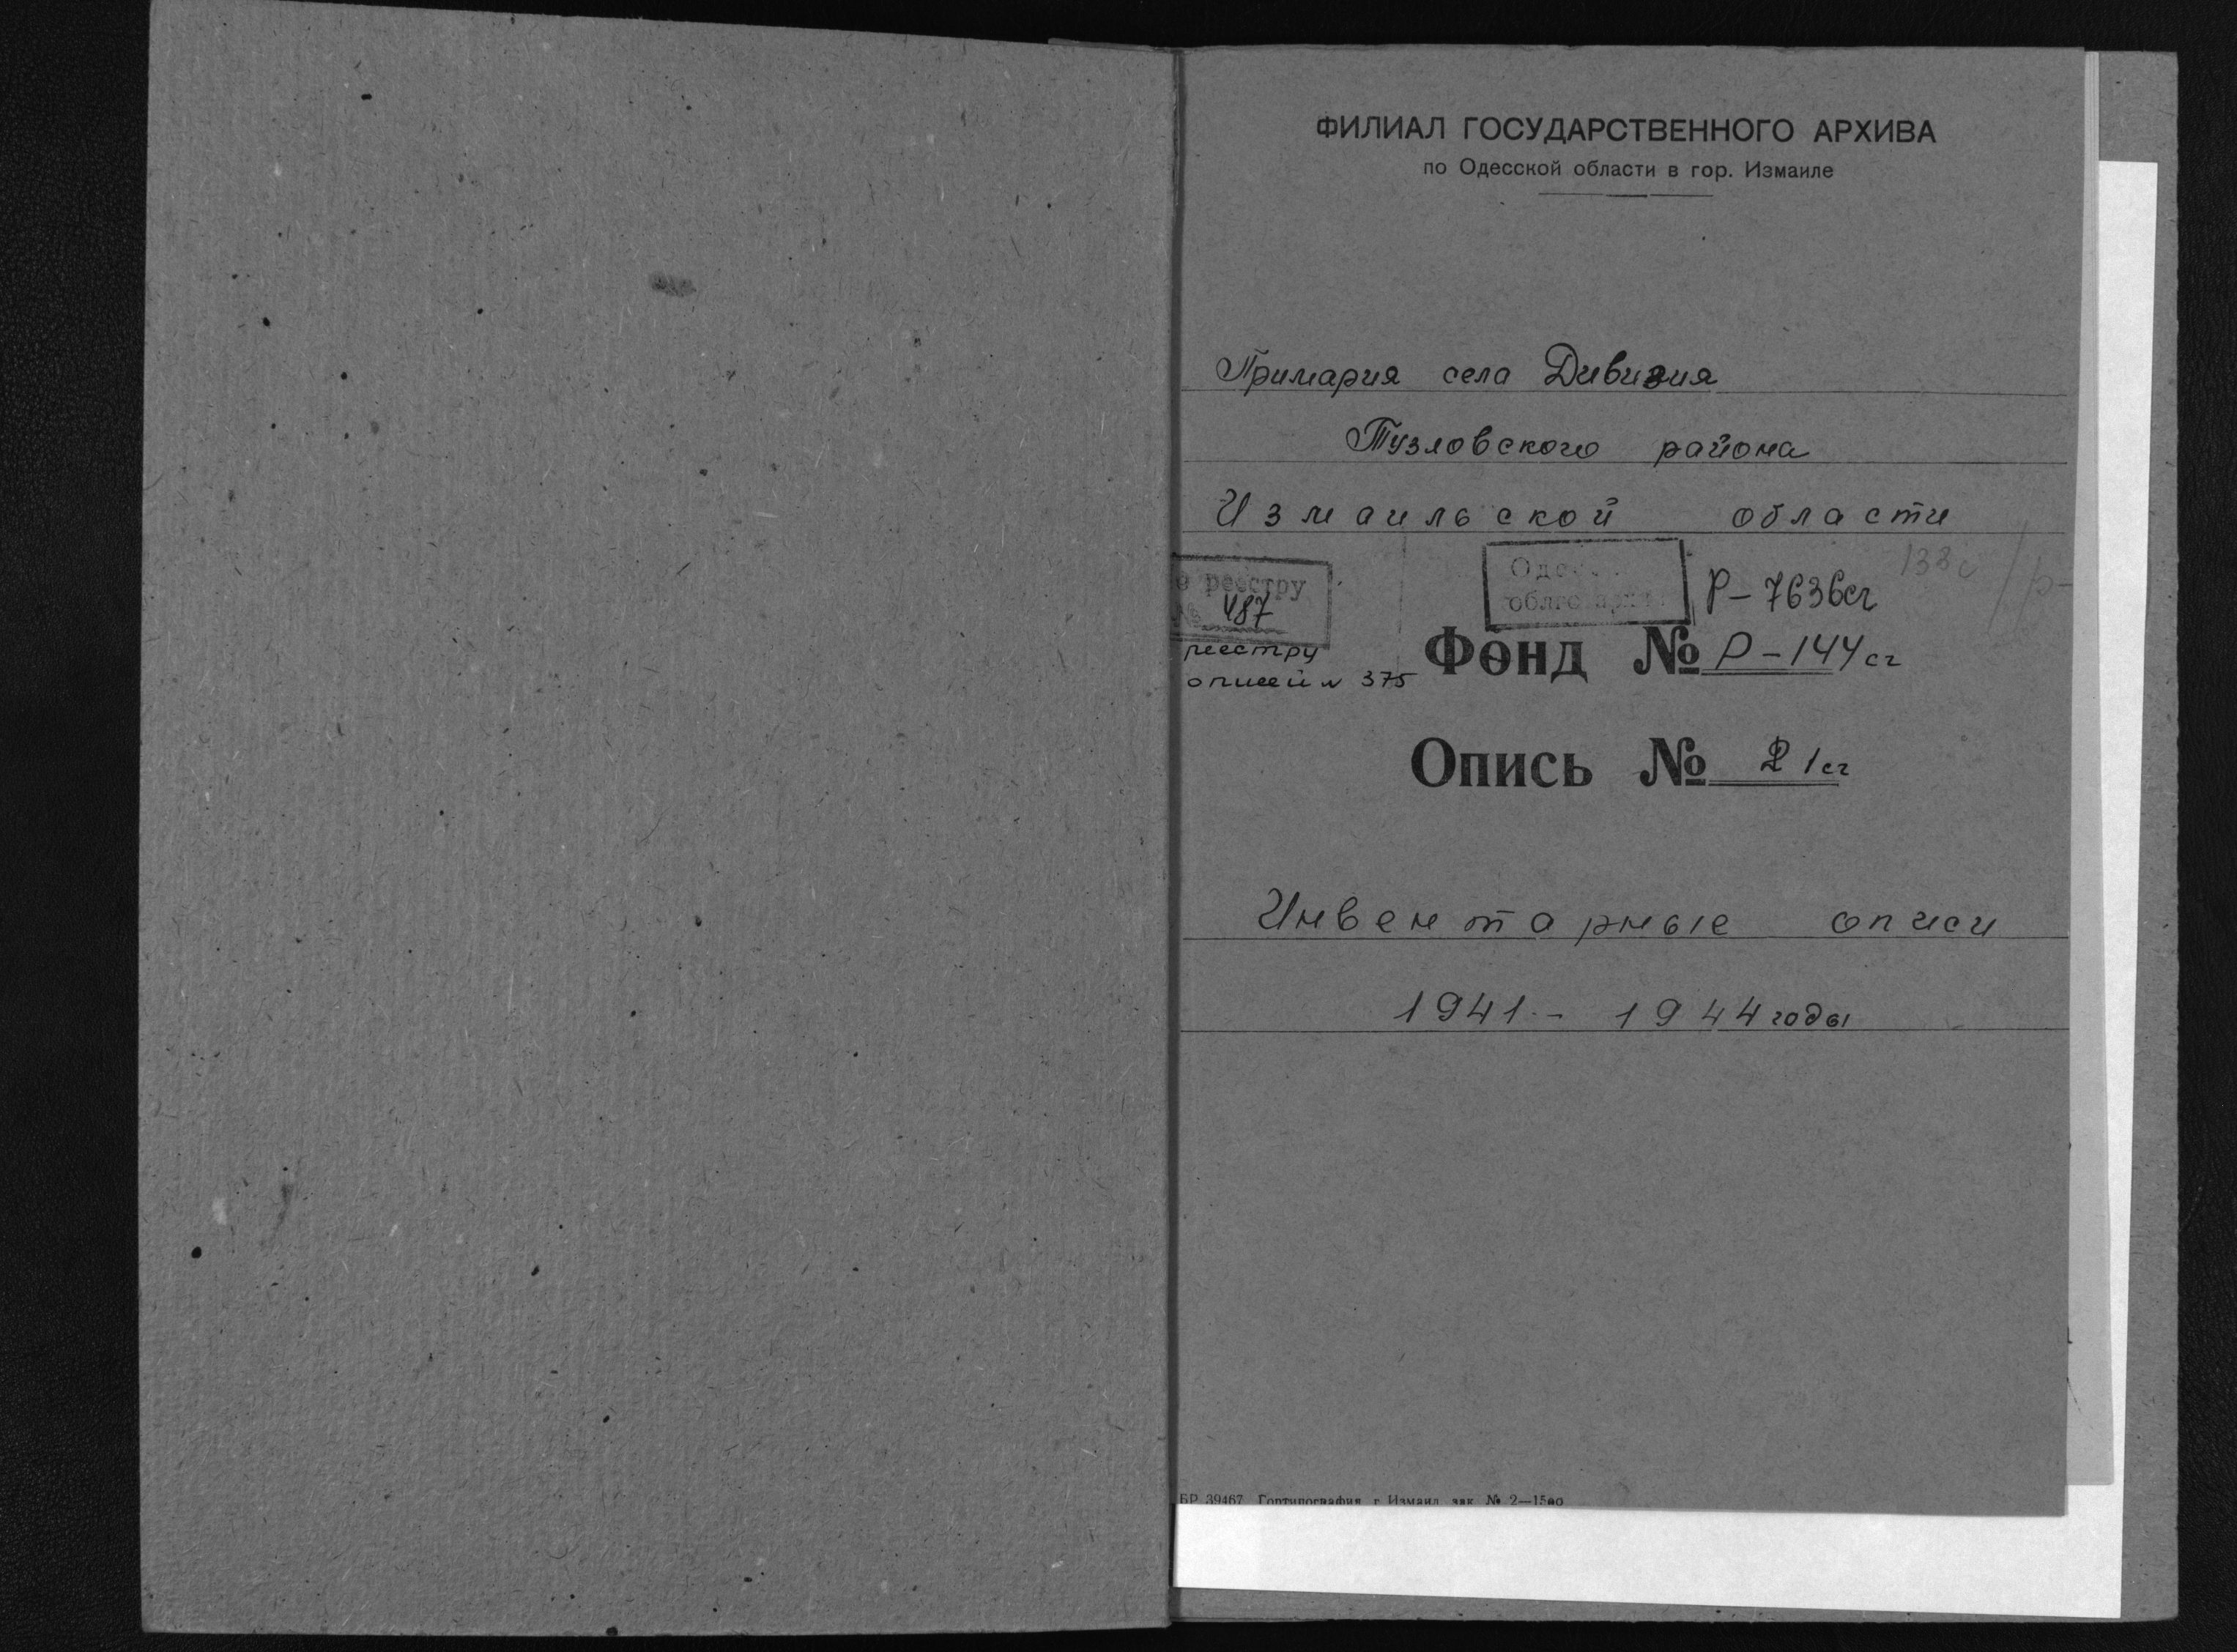 ФИЛИАЛ ГОСУДАРСТВЕННОГО АРХИВА
по Одесской области в гор. Измаиле
Примария села Дивизия
Тузловского района
Измаильской области
реестру
№ 487
реестру
описей № 375
138с
Р-7636сг
Фонд № Р-144сг
Опись № 1сг
Инвентарные описи
1941 - 1944 годы
БР 39467 Гортипография г. Измаил зак. №